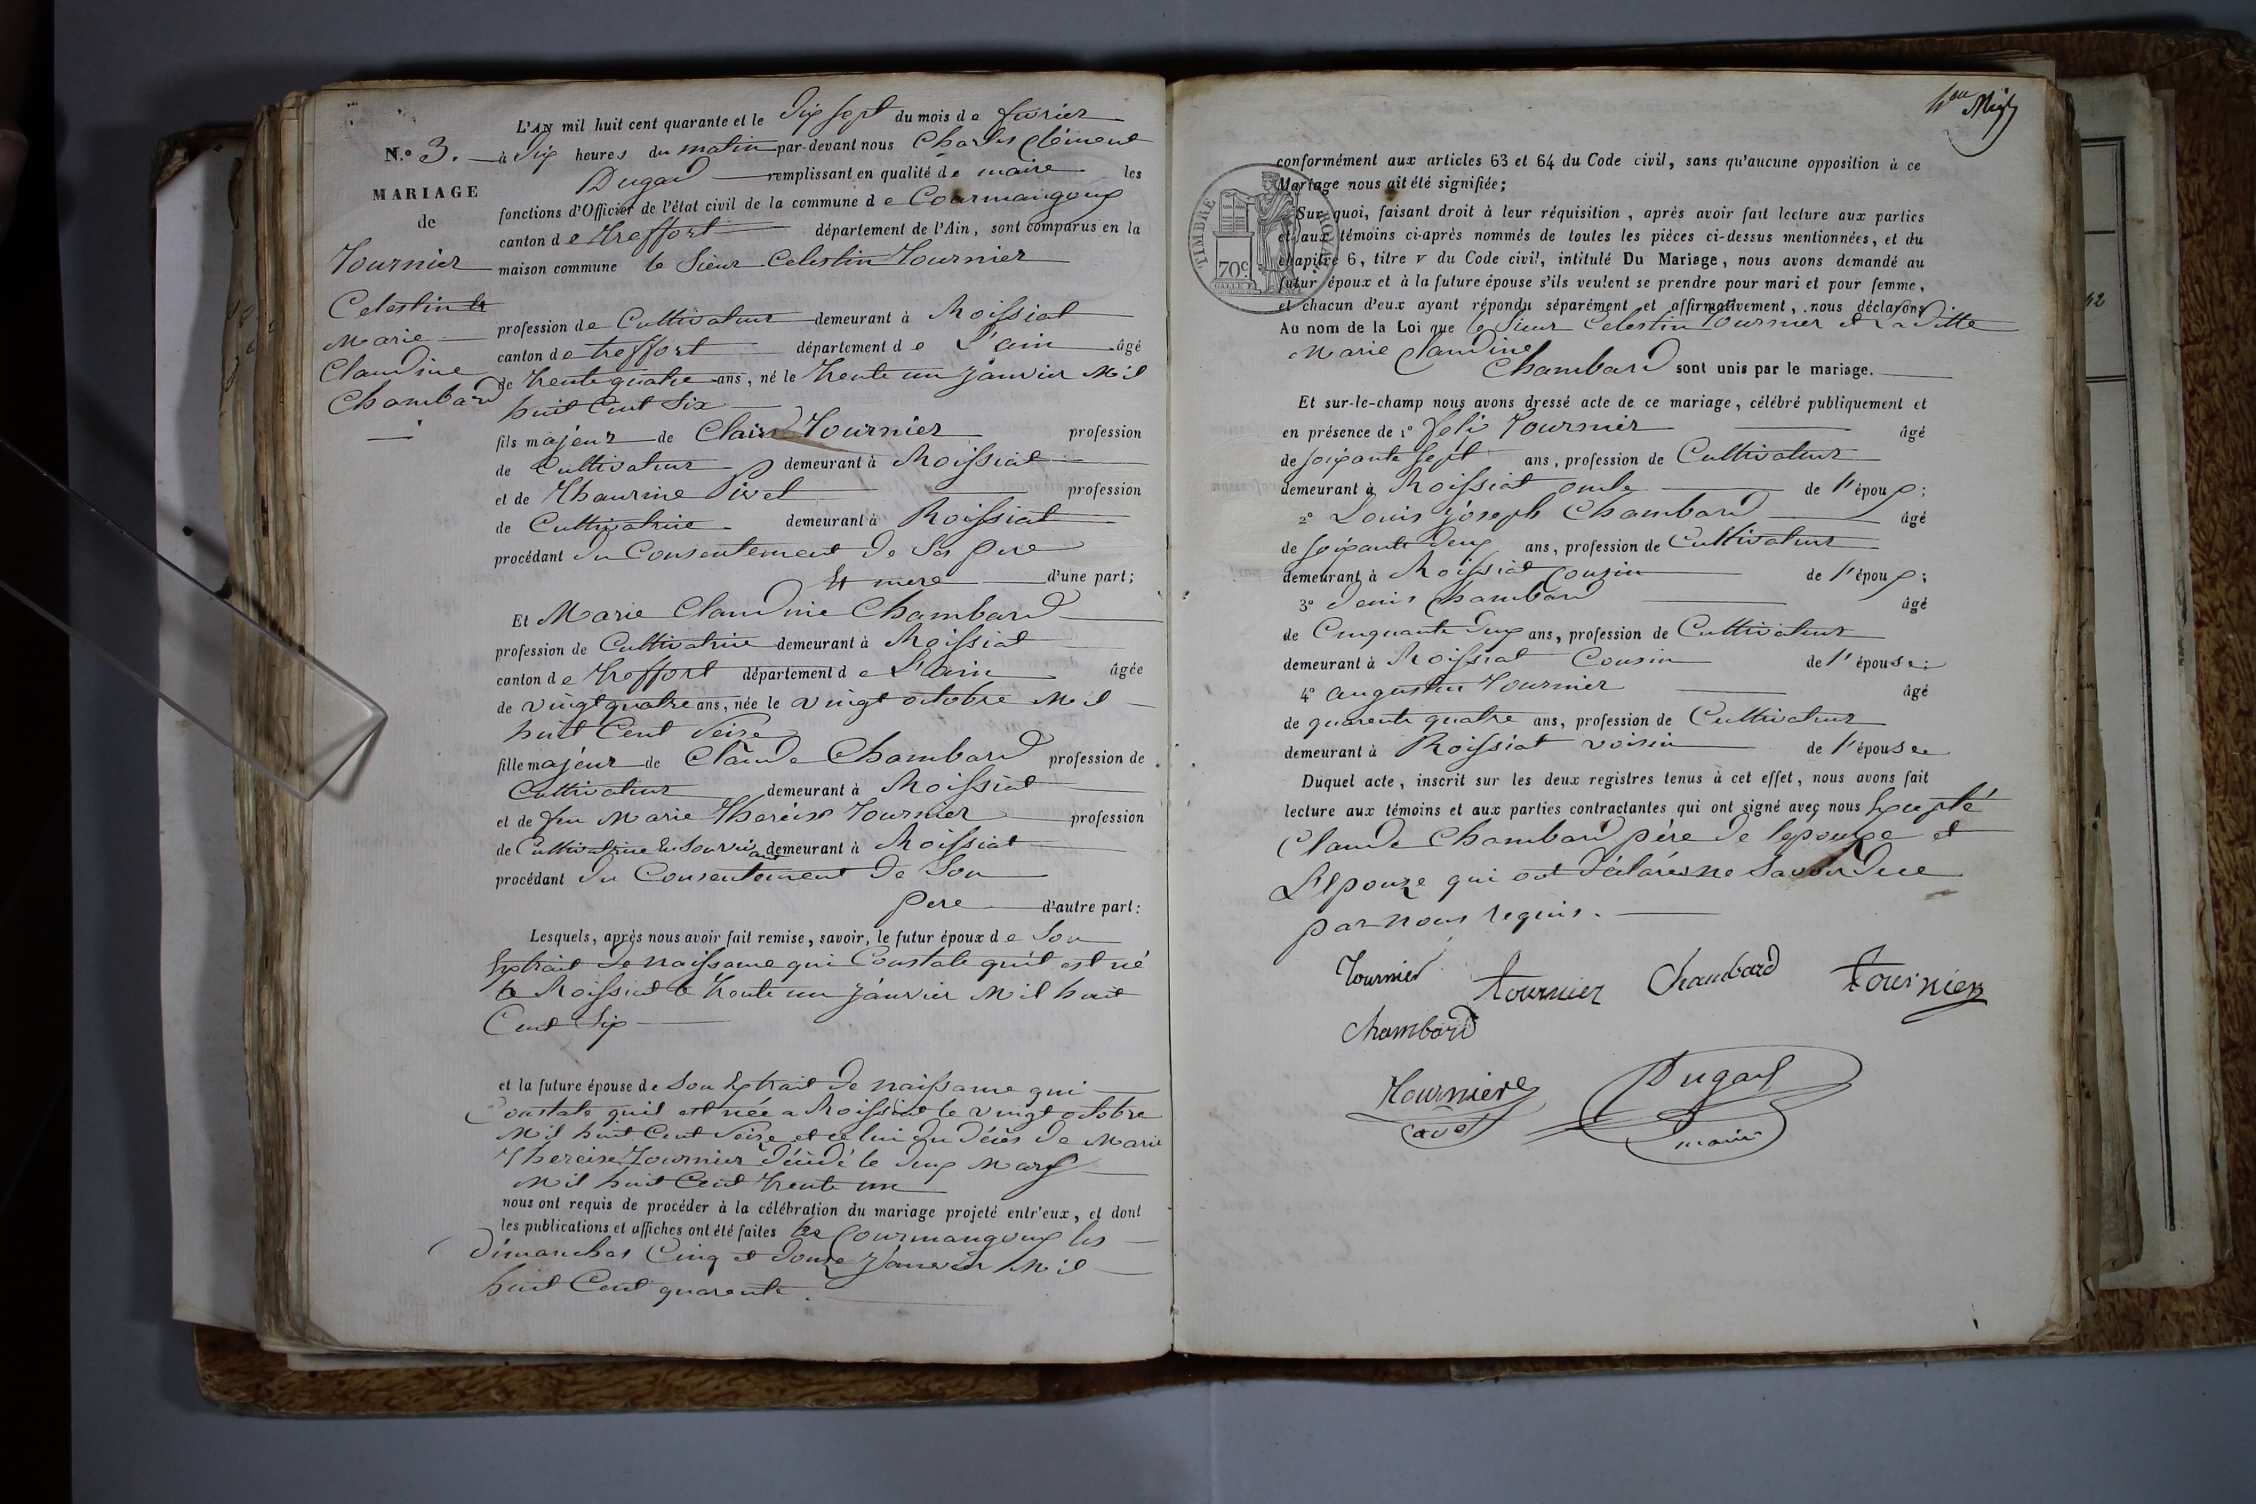 L'AN mil huit cent quarante et le Dix sept du mois de fevrier
N.º 3. à Dix heures du matin par-devant nous Charles Clément
Dugad remplissant en qualité de maire les
fonctions d'Officier de l'état civil de la commune de Courmangoux
canton de treffort département de l'Ain, sont comparus en la
maison commune le Sieur Celestin Tournier
MARIAGE
de
Tournier
Celestin &
Marie
Claudine
Chambard
profession de Cultivateur demeurant à Roissiat
canton de treffort département de L'ain âgé
de trente quatre ans, né le trente un janvier Mil
huit Cent Six
fils majeur de Clair Tournier profession
de Cultivateur demeurant à Roissiat
et de Thaurine Pivet profession
de Cultivatrice demeurant à Roissiat
procédant du Consentement de Ses pere
Et mere d'une part;
Et Marie Claudine Chambard
profession de Cultivatrice demeurant à Roissiat
canton de treffort département de L'ain âgée
de vingt quatre ans, née le vingt octobre Mil
huit Cent Seize
fille majeur de Claude Chambard profession de
Cultivateur demeurant à Roissiat
et de feu Marie Thereise Tournier profession
de Cultivatrice En Son vivant demeurant à Roissiat
procédant du Consentement de Son
pere d'autre part:
Lesquels, après nous avoir fait remise, savoir, le futur époux de Son
Extrait de naissance qui Constate qu'il est né
a Roissiat le trente un janvier Mil huit
Cent Six
et la future épouse de Son Extrait de naissance qui
Constate quil est née a Roissiat le vingt octobre
Mil huit Cent Seize et celui du décès de Marie
Thereise Tournier décédé le deux Mars
Mil huit Cent trente un
nous ont requis de procéder à la célébration du mariage projeté entr'eux, et dont
les publications et affiches ont été faites a Courmangoux les
Dimanches Cinq et douze Janvier Mil
huit Cent quarante.
conformément aux articles 63 et 64 du Code civil, sans qu'aucune opposition à ce
Mariage nous ait été signifiée;
TIMBRE ROYAL
70c
Sur quoi, faisant droit à leur réquisition, après avoir fait lecture aux parties
et aux témoins ci-après nommés de toutes les pièces ci-dessus mentionnées, et du
chapitre 6, titre v du Code civil, intitulé Du Mariage, nous avons demandé au
futur époux et à la future épouse s'ils veulent se prendre pour mari et pour femme,
et chacun d'eux ayant répondu séparément et affirmativement, nous déclarons
Au nom de la Loi que le Sieur Celestin Tournier et la ditte
Marie Claudine
Chambard sont unis par le mariage.
Et sur-le-champ nous avons dressé acte de ce mariage, célébré publiquement et
en présence de 1º felix Tournier âgé
de soixante sept ans, profession de Cultivateur
demeurant à Roissiat oncle de l'époux;
2º Louis joseph Chambard âgé
de soixante deux ans, profession de Cultivateur
demeurant à Roissiat Cousin de l'époux;
3º denis Chambard âgé
de Cinquante deux ans, profession de Cultivateur
demeurant à Roissiat Cousin de l'épouse;
4º augustin Tournier âgé
de quarente quatre ans, profession de Cultivateur
demeurant à Roissiat voisin de l'épouse
Duquel acte, inscrit sur les deux registres tenus à cet effet, nous avons fait
lecture aux témoins et aux parties contractantes qui ont signé avec nous Excepté
Claude Chambard père de lepouze et
L'Epouze qui ont déclarés ne Savoir dece
par nous requis.
Tournier tournier Chambard tournier
Chambard
Tournier Dugad
maire